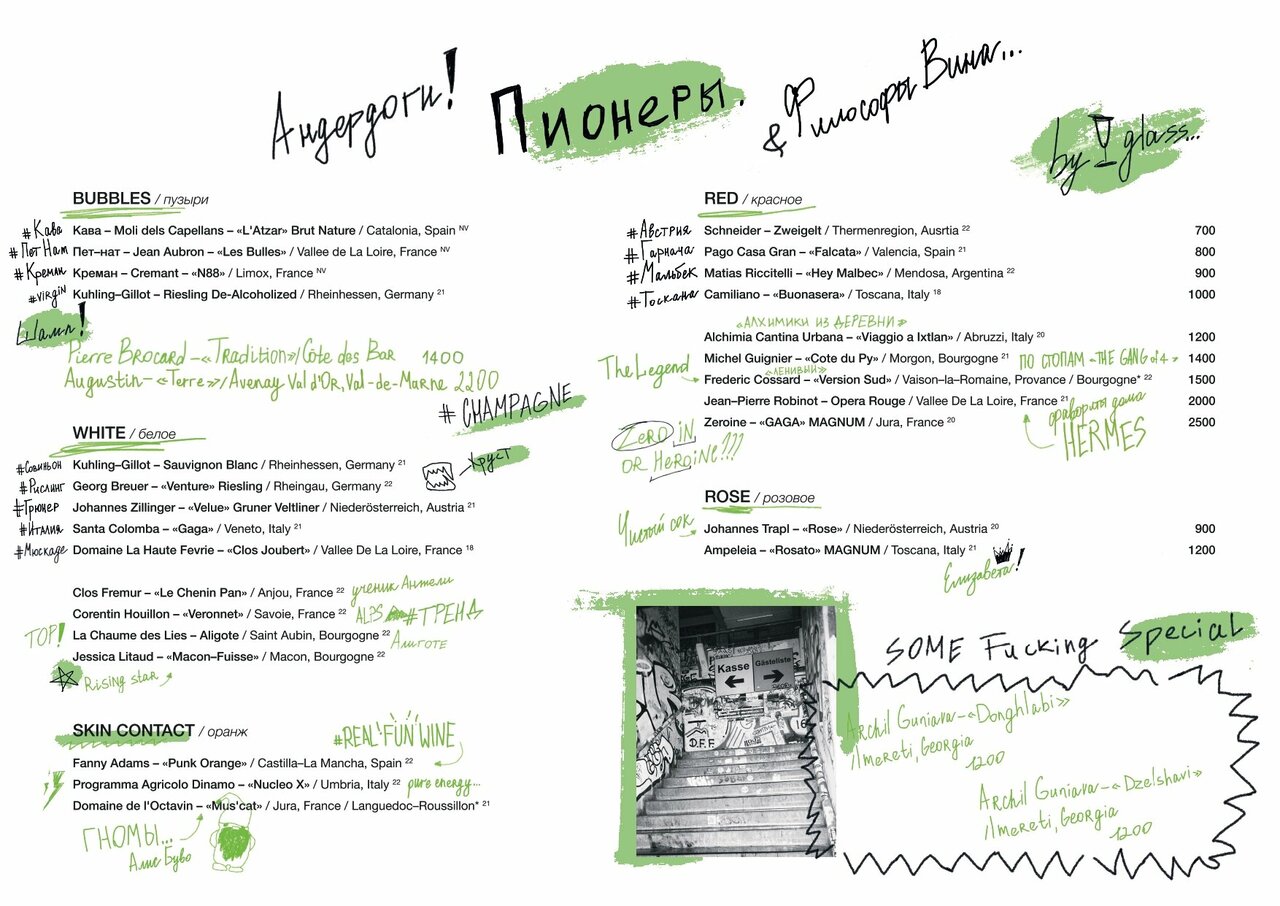 Андердоги! Пионеры. & Философы Вина...
by glass...
BUBBLES / пузыри
#Кава Кава – Moli dels Capellans – «L'Atzar» Brut Nature / Catalonia, Spain NV
#ПетНат Пет–нат – Jean Aubron – «Les Bulles» / Vallee de La Loire, France NV
#Креман Креман – Cremant – «N88» / Limox, France NV
#Virgin Kuhling–Gillot – Riesling De-Alcoholized / Rheinhessen, Germany 21
Шамп!
Pierre Brocard – «Tradition» / Côte des Bar 1400
Augustin – «Terre» / Avenay Val d'Or, Val-de-Marne 2200
# CHAMPAGNE
WHITE / белое
#Совиньон Kuhling–Gillot – Sauvignon Blanc / Rheinhessen, Germany 21
Хруст
#Рислинг Georg Breuer – «Venture» Riesling / Rheingau, Germany 22
#Грюнер Johannes Zillinger – «Velue» Gruner Veltliner / Niederösterreich, Austria 21
#Италия Santa Colomba – «Gaga» / Veneto, Italy 21
#Мюскаде Domaine La Haute Fevrie – «Clos Joubert» / Vallee De La Loire, France 18
Clos Fremur – «Le Chenin Pan» / Anjou, France 22 ученик Анжели
Corentin Houillon – «Veronnet» / Savoie, France 22 ALPS #ТРЕНД
TOP! La Chaume des Lies – Aligote / Saint Aubin, Bourgogne 22 Алиготе
Jessica Litaud – «Macon–Fuisse» / Macon, Bourgogne 22
Rising star
SKIN CONTACT / оранж
#REAL FUN WINE
Fanny Adams – «Punk Orange» / Castilla–La Mancha, Spain 22
Programma Agricolo Dinamo – «Nucleo X» / Umbria, Italy 22 pure energy...
Domaine de l'Octavin – «Mus'cat» / Jura, France / Languedoc–Roussillon* 21
ГНОМЫ...
Алис Буво
RED / красное
#Австрия Schneider – Zweigelt / Thermenregion, Ausrtia 22 700
#Гарнача Pago Casa Gran – «Falcata» / Valencia, Spain 21 800
#Мальбек Matias Riccitelli – «Hey Malbec» / Mendosa, Argentina 22 900
#Тоскана Camiliano – «Buonasera» / Toscana, Italy 18 1000
«АЛХИМИКИ ИЗ ДЕРЕВНИ»
Alchimia Cantina Urbana – «Viaggio a Ixtlan» / Abruzzi, Italy 20 1200
Michel Guignier – «Cote du Py» / Morgon, Bourgogne 21 ПО СТОПАМ «THE GANG of 4» 1400
The Legend
«ЛЕНИВЫЙ»
Frederic Cossard – «Version Sud» / Vaison–la–Romaine, Provance / Bourgogne* 22 1500
Jean–Pierre Robinot – Opera Rouge / Vallee De La Loire, France 21 2000
Zeroine – «GAGA» MAGNUM / Jura, France 20 2500
фавориты дома
HERMES
ZERO IN
OR HEROINE???
ROSE / розовое
Чистый сок
Johannes Trapl – «Rose» / Niederösterreich, Austria 20 900
Ampeleia – «Rosato» MAGNUM / Toscana, Italy 21 1200
Елизавета!
Kasse
Gästeliste
D.F.F.
SOME Fucking Special
Archil Guniava – «Donghlabi»
/ Imereti, Georgia
1200
Archil Guniava – «Dzelshavi»
/ Imereti, Georgia
1200